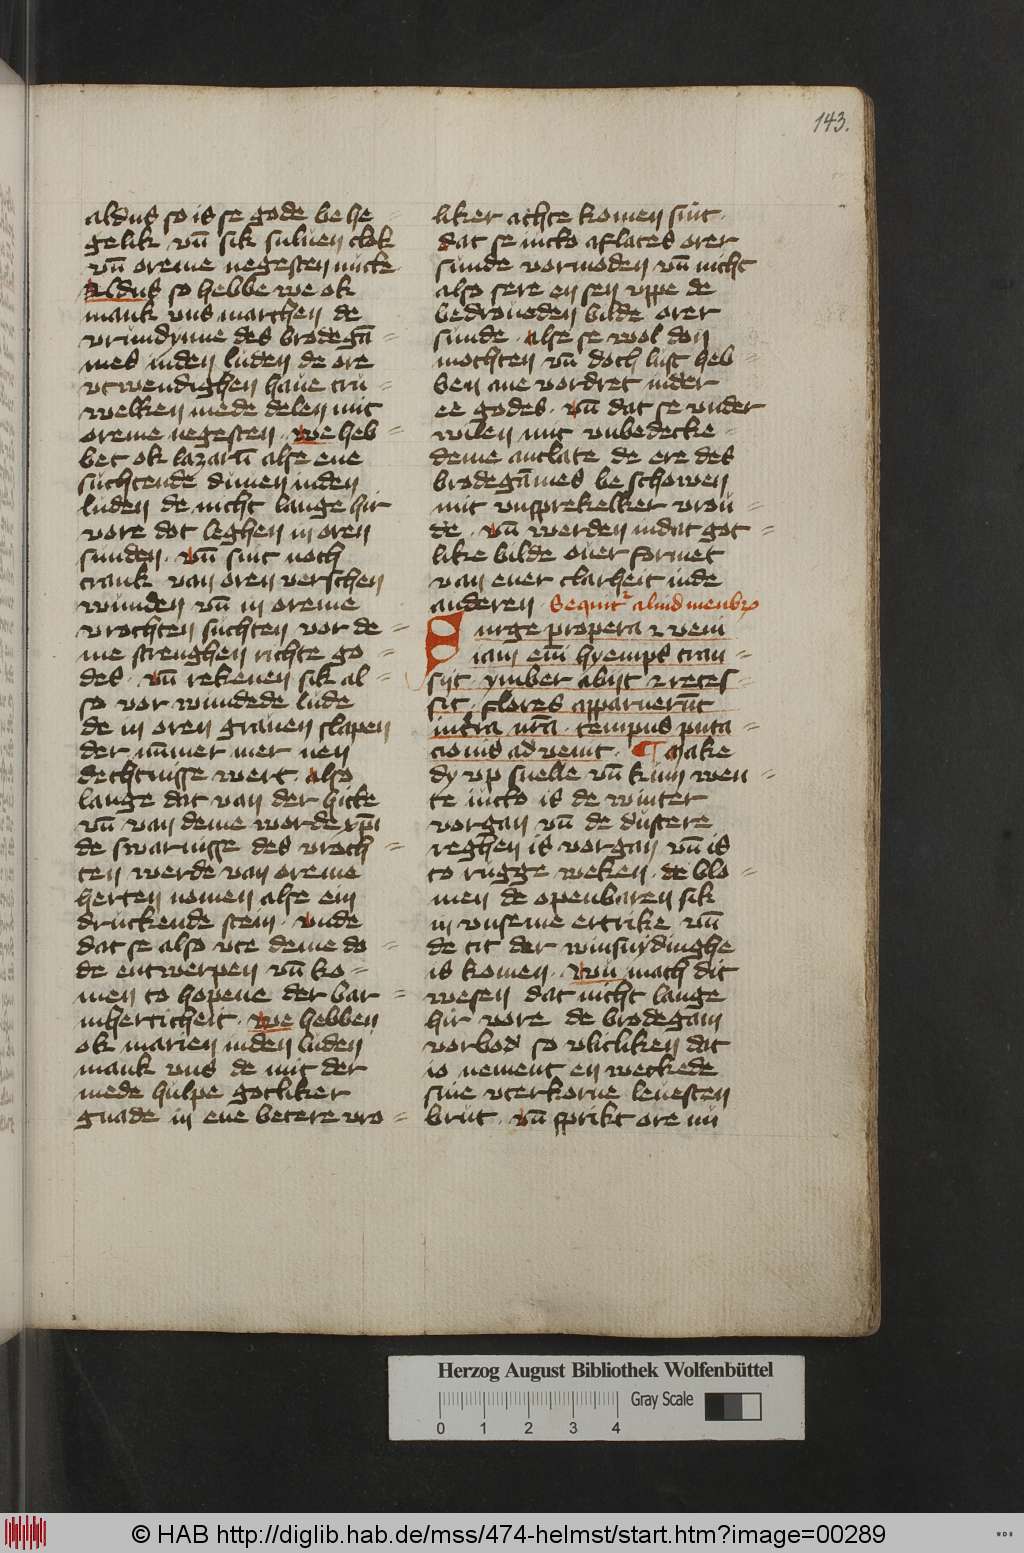 143.
aldus so is se gode be he
gelik vn̄ sik suluen clok
vn̄ oreme negesten nutte
Aldus so hebbe we ok
mank vns marthen de
vrundynne des brodegā
mes inden luden de ore
vtwendighen haue tru
welken mede delen mit
oreme negesten . We heb
bet ok lazarū alse ene
suchtende dimen inden
luden de nicht lange hir
vore dot leghen in oren
sunden . vn̄ sint noch
crank van oren verschen
wunden vn̄ in oreme
vrochten suchten vor de
me strenghen richte go
des . vn̄ rekenen sik al
so vor wundede lude
de in oren grauen slapen
der nūmer mer nen
dechtnisse wert . also
lange dat van der hitte
vn̄ van deme worde xpī
de swarnisse des vroch
ten werde van oreme
herten nomen alse ein
druckende stein . vnde
dat se also vte deme do
de entwerpen vn̄ ko
men to hopene der bar
mherticheit . We hebben
ok marien inden luden
mank vns de mit der
mede hulpe gotliker
gnade in ene betere vro
liker achte komen sint .
dat se iucto aflates orer
sunde vormoden vn̄ nicht
also sere en sen vppe de
bedroueden bilde orer
sunde . alse se wol don
mochten vn̄ doch lust heb
ben ane vordret inder
ee godes . vn̄ dat se vnder
wilen mit vnbedecke
deme antlate de ere des
brodegāmes beschowen
mit vnsprekelker vrou
de . vn̄ werden indat got
like bilde ouer formet
van ener clarheit inde
anderen . Sequitr aliud membrū
Surge propera et veni
iam em̄ hyemps tran
sijt . ymber abijt et reces
sit . flores apparuerūt
in terra nr̄a . tempus puta
cionis aduenit . ¶ Make
dy vp snelle vn̄ kum wen
te iucto is de winter
vorgan vn̄ de dustere
reghen is vorgan vn̄ is
to rugge weken . de blo
men de openbaren sik
in vnseme ertrike vn̄
de tit der winsnydinghe
is komen . Wu mach dit
wesen dat nicht lange
hir vore de brodegam
vorbod so vlitliken dat
io nement en weckede
sine vterkorne leuesten
brut . vn̄ sprikt ore nu
Herzog August Bibliothek Wolfenbüttel
0 1 2 3 4
Gray Scale
© HAB http://diglib.hab.de/mss/474-helmst/start.htm?image=00289
WDB